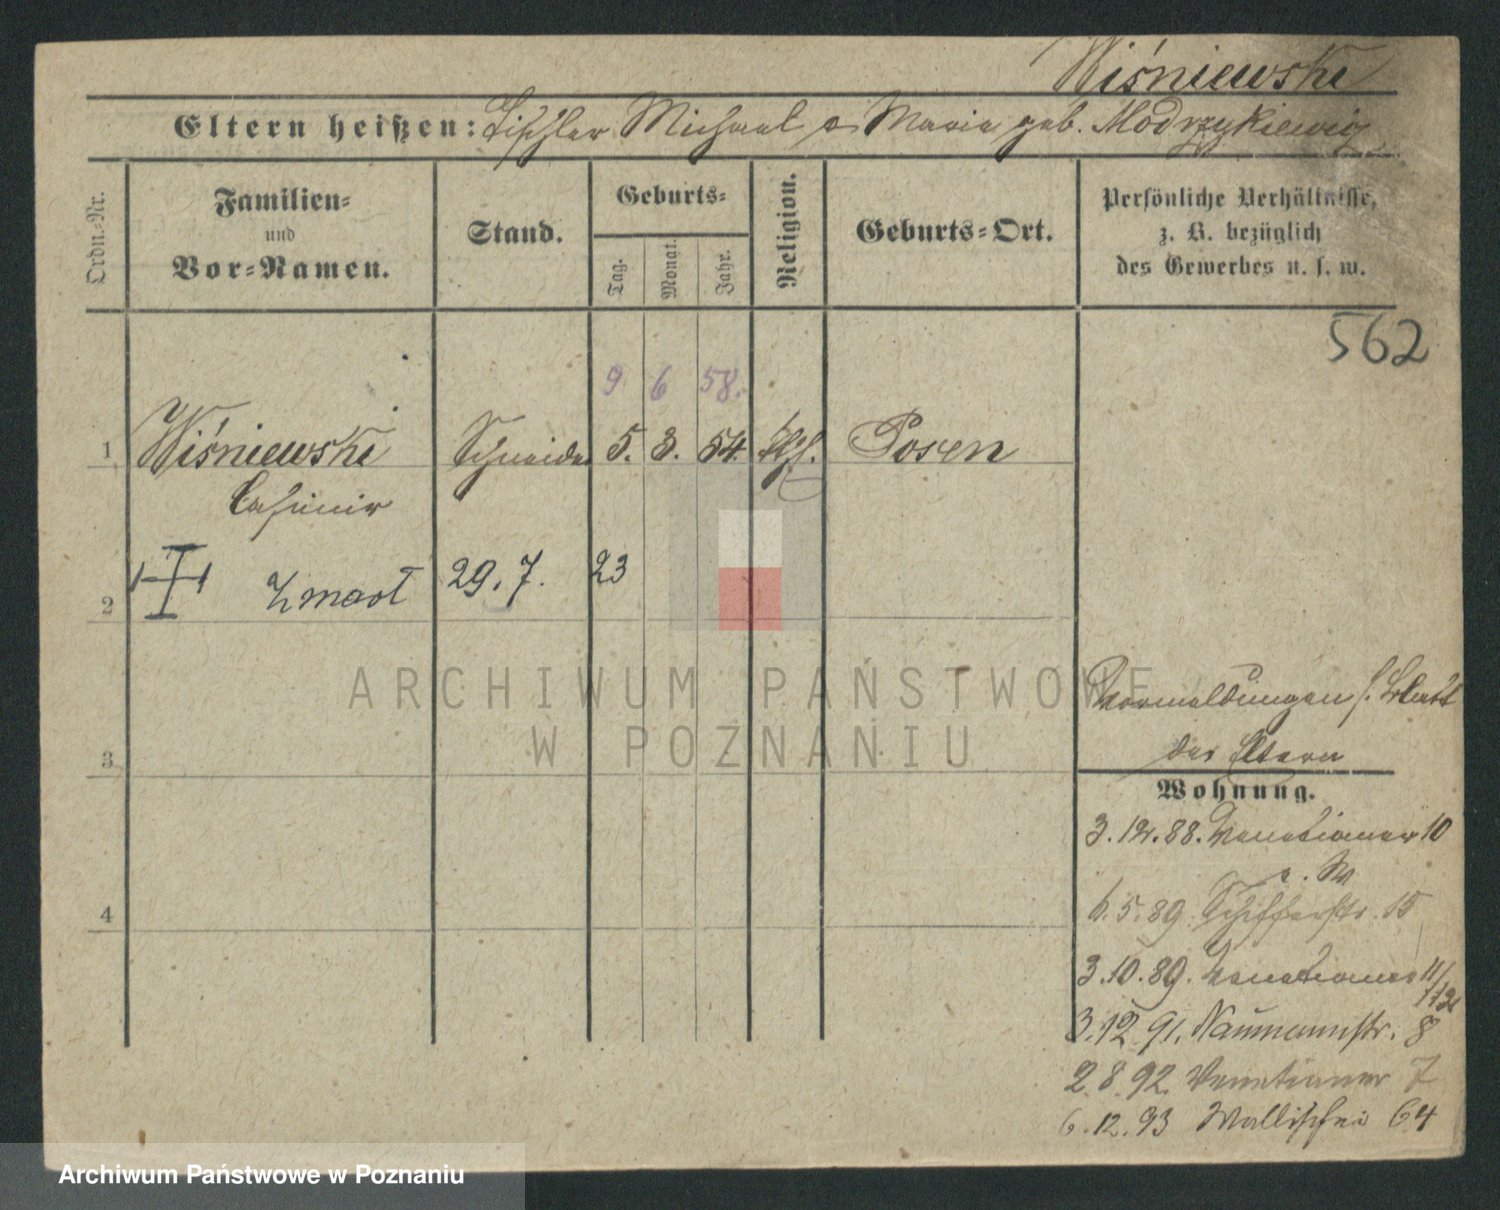 Wiśniewski
Eltern heißen: Tischler Michael & Marie geb. Modrzykiewicz
Ordn.-Nr.
Familien-
und
Vor-Namen.
Stand.
Geburts-
Tag.
Monat.
Jahr.
Religion.
Geburts-Ort.
Persönliche Verhältnisse,
z. B. bezüglich
des Gewerbes u. s. w.
562
9 6 58.
1 Wiśniewski Schneider 5. 3. 54. kth. Posen
Casimir
2 Zmarł 29. 7. 23
3
4
Vormeldungen s. Blatt
der Eltern
Wohnung.
3. 12. 88. Venetianer 10
6. 5. 89. Schifferstr. 15
3. 10. 89. Venetianer 11/
3. 12. 91. Naumannstr. 8
2. 8. 92 Venetianer 7
6. 12. 93 Wallischei 64
ARCHIWUM PAŃSTWOWE
W POZNANIU
Archiwum Państwowe w Poznaniu